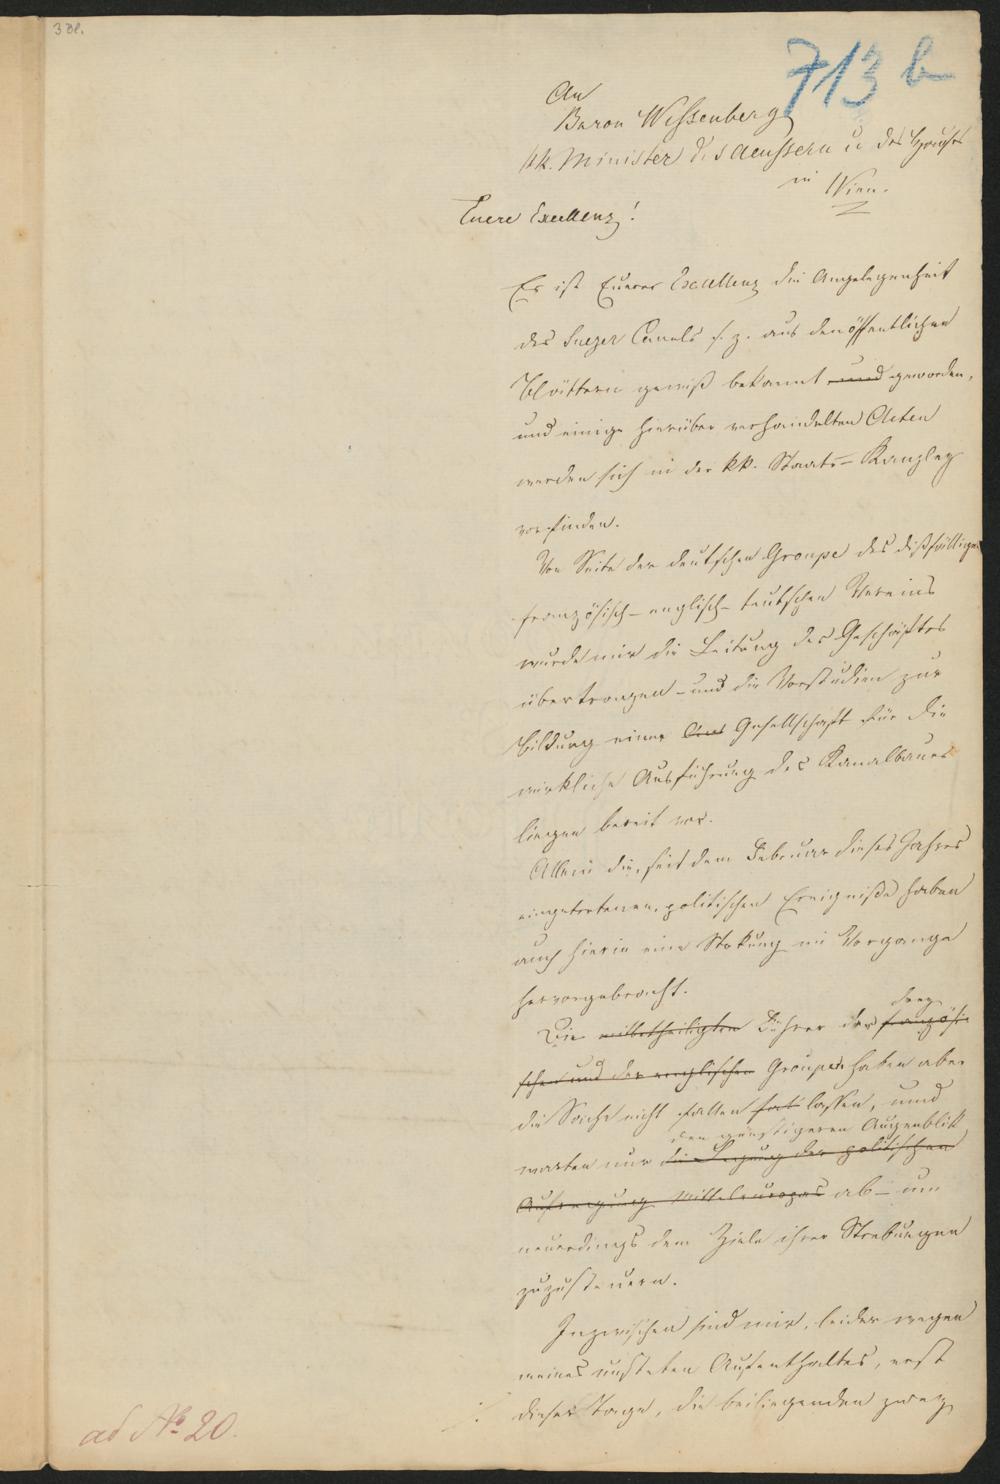 3 Bl.
713 b
An
Baron Wessenberg
kk. Minister des Aeussern u des Hauses
in Wien.
Euere Excellenz!
Es ist Euerer Excellenz die Angelegenheit
des Suezer Canals s. z. aus den öffentlichen
Blättern gewiß bekannt und geworden,
und einige hierüber verhandelten Acten
werden sich in der kk. Staats-Kanzley
vorfinden.
Von Seite der deutschen Groupe des dießfälligen
französisch-englisch-teutschen Vereins
wurde mir die Leitung des Geschäftes
übertragen - und die Vorstudien zur
Bildung einer Gesellschaft für die
wirkliche Ausführung des Kanalbaues
liegen bereit vor.
Allein die, seit dem Februar dieses Jahres
eingetretenen, politischen Ereigniße haben
auch hierin eine Stokung im Vorgange
hervorgebracht.
drey
Die mitbetheiligten Führer der französi-
schen und der englischen Groupen haben aber
die Sache nicht fallen lassen, und
den günstigeren Augenblik
warten nur die Legung der politischen
Aufregung Mitteleuropas ab - um
neuerdings dem Ziele ihrer Strebungen
zuzusteuern.
Inzwischen sind mir, leider wegen
meines unsteten Aufenthaltes, erst
dieser Tage, die beiliegenden zwey
ad No 20.